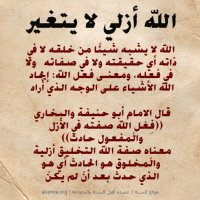 الله أزلي لا يتغير
الله لا يشبه شيئًا من خلقه لا في
ذاته أي حقيقته ولا في صفاته ولا
في فعله، ومعنى فعل الله: إيجاد
الله الأشياء على الوجه الذي أراد
قال الإمام أبو حنيفة والبخاري
((فعل الله صفته في الأزل
والمفعول حادث))
معناه صفة الله التخليق أزلية
والمخلوق هو الحادث أي هو
الذي حدث بعد أن لم يكن